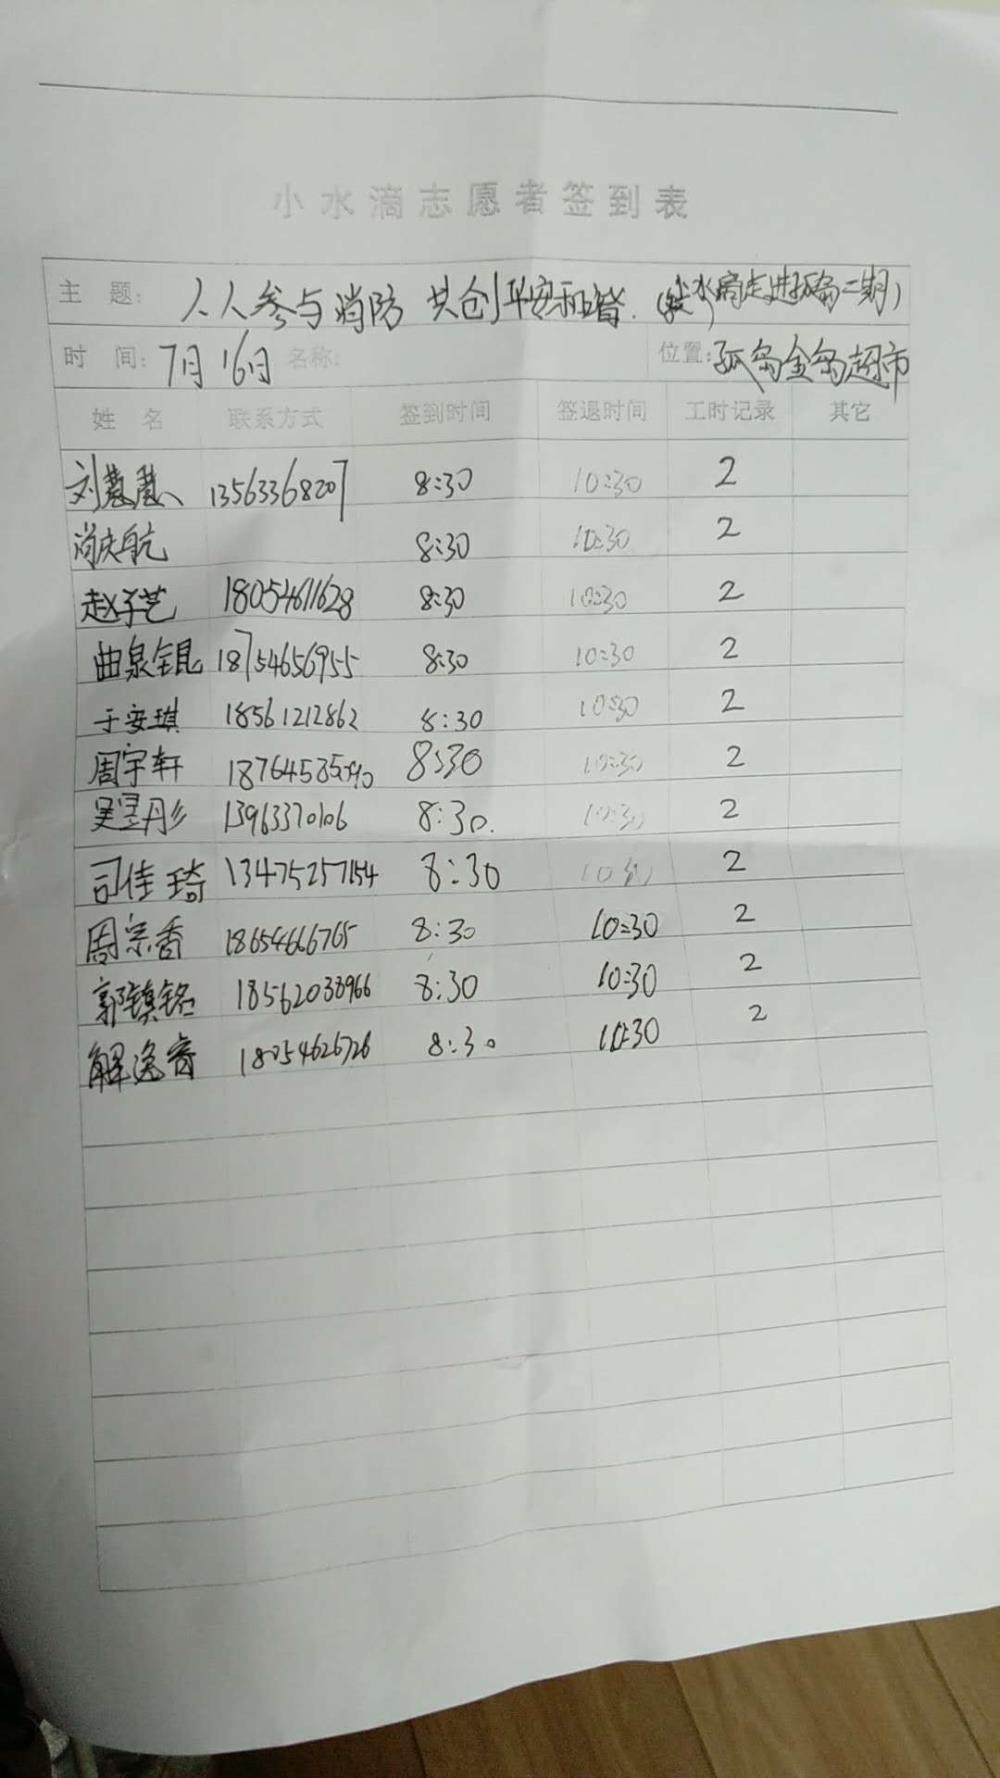 小水滴志愿者签到表
主 题: 人人参与消防 共创平安和谐.(小水滴走进孤岛二期)
时 间: 7月16日 名称: 位置: 孤岛金岛超市
姓 名 联系方式 签到时间 签退时间 工时记录 其它
刘慧慧 13563368207 8:30 10:30 2
尚庆航 8:30 10:30 2
赵子艺 18054611628 8:30 10:30 2
曲泉锟 18754656955 8:30 10:30 2
于安琪 18561212862 8:30 10:30 2
周宇轩 8:30 10:30 2
吴昱彤 13963370106 8:30. 10:30 2
司佳琦 13475257154 8:30 10:30 2
周宗香 18654666765 8:30 10:30 2
郭镇铭 18562038966 8:30 10:30 2
解逸音 18054626726 8:30 10:30 2